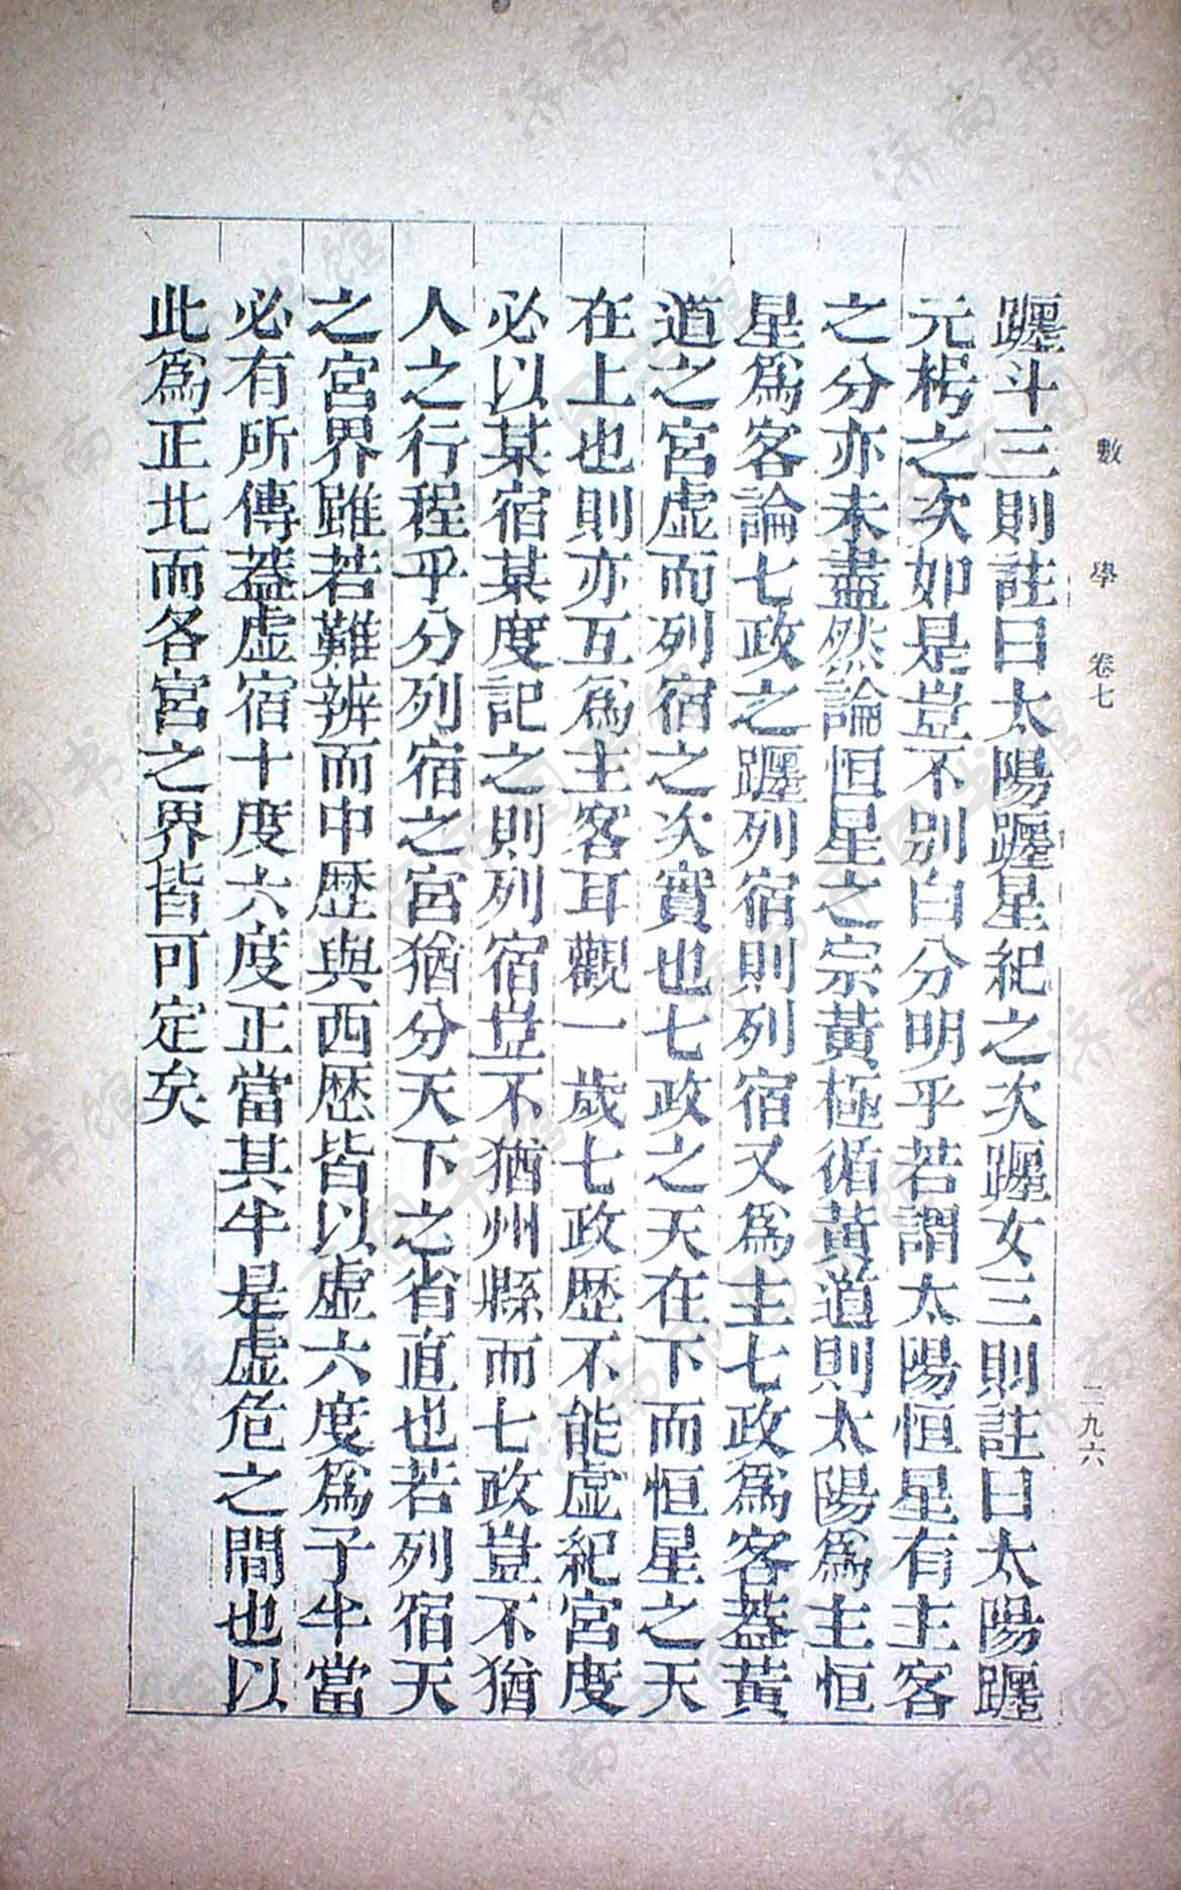 數學 卷七 二九六
躔斗三則註曰太陽躔星紀之次躔女三則註曰太陽躔
元枵之次如是豈不別白分明乎若謂太陽恒星有主客
之分亦未盡然論恒星之宗黃極循黃道則太陽爲主恒
星爲客論七政之躔列宿則列宿又爲主七政爲客葢黃
道之宮虛而列宿之次實也七政之天在下而恒星之天
在上也則亦互爲主客耳觀一歲七政歷不能虛紀宮度
必以某宿某度記之則列宿豈不猶州縣而七政豈不猶
人之行程乎分列宿之宮猶分天下之省直也若列宿天
之宮界雖若難辨而中歷與西歷皆以虛六度爲子半當
必有所傳葢虛宿十度六度正當其半是虛危之間也以
此爲正北而各宮之界皆可定矣
济南市图书馆